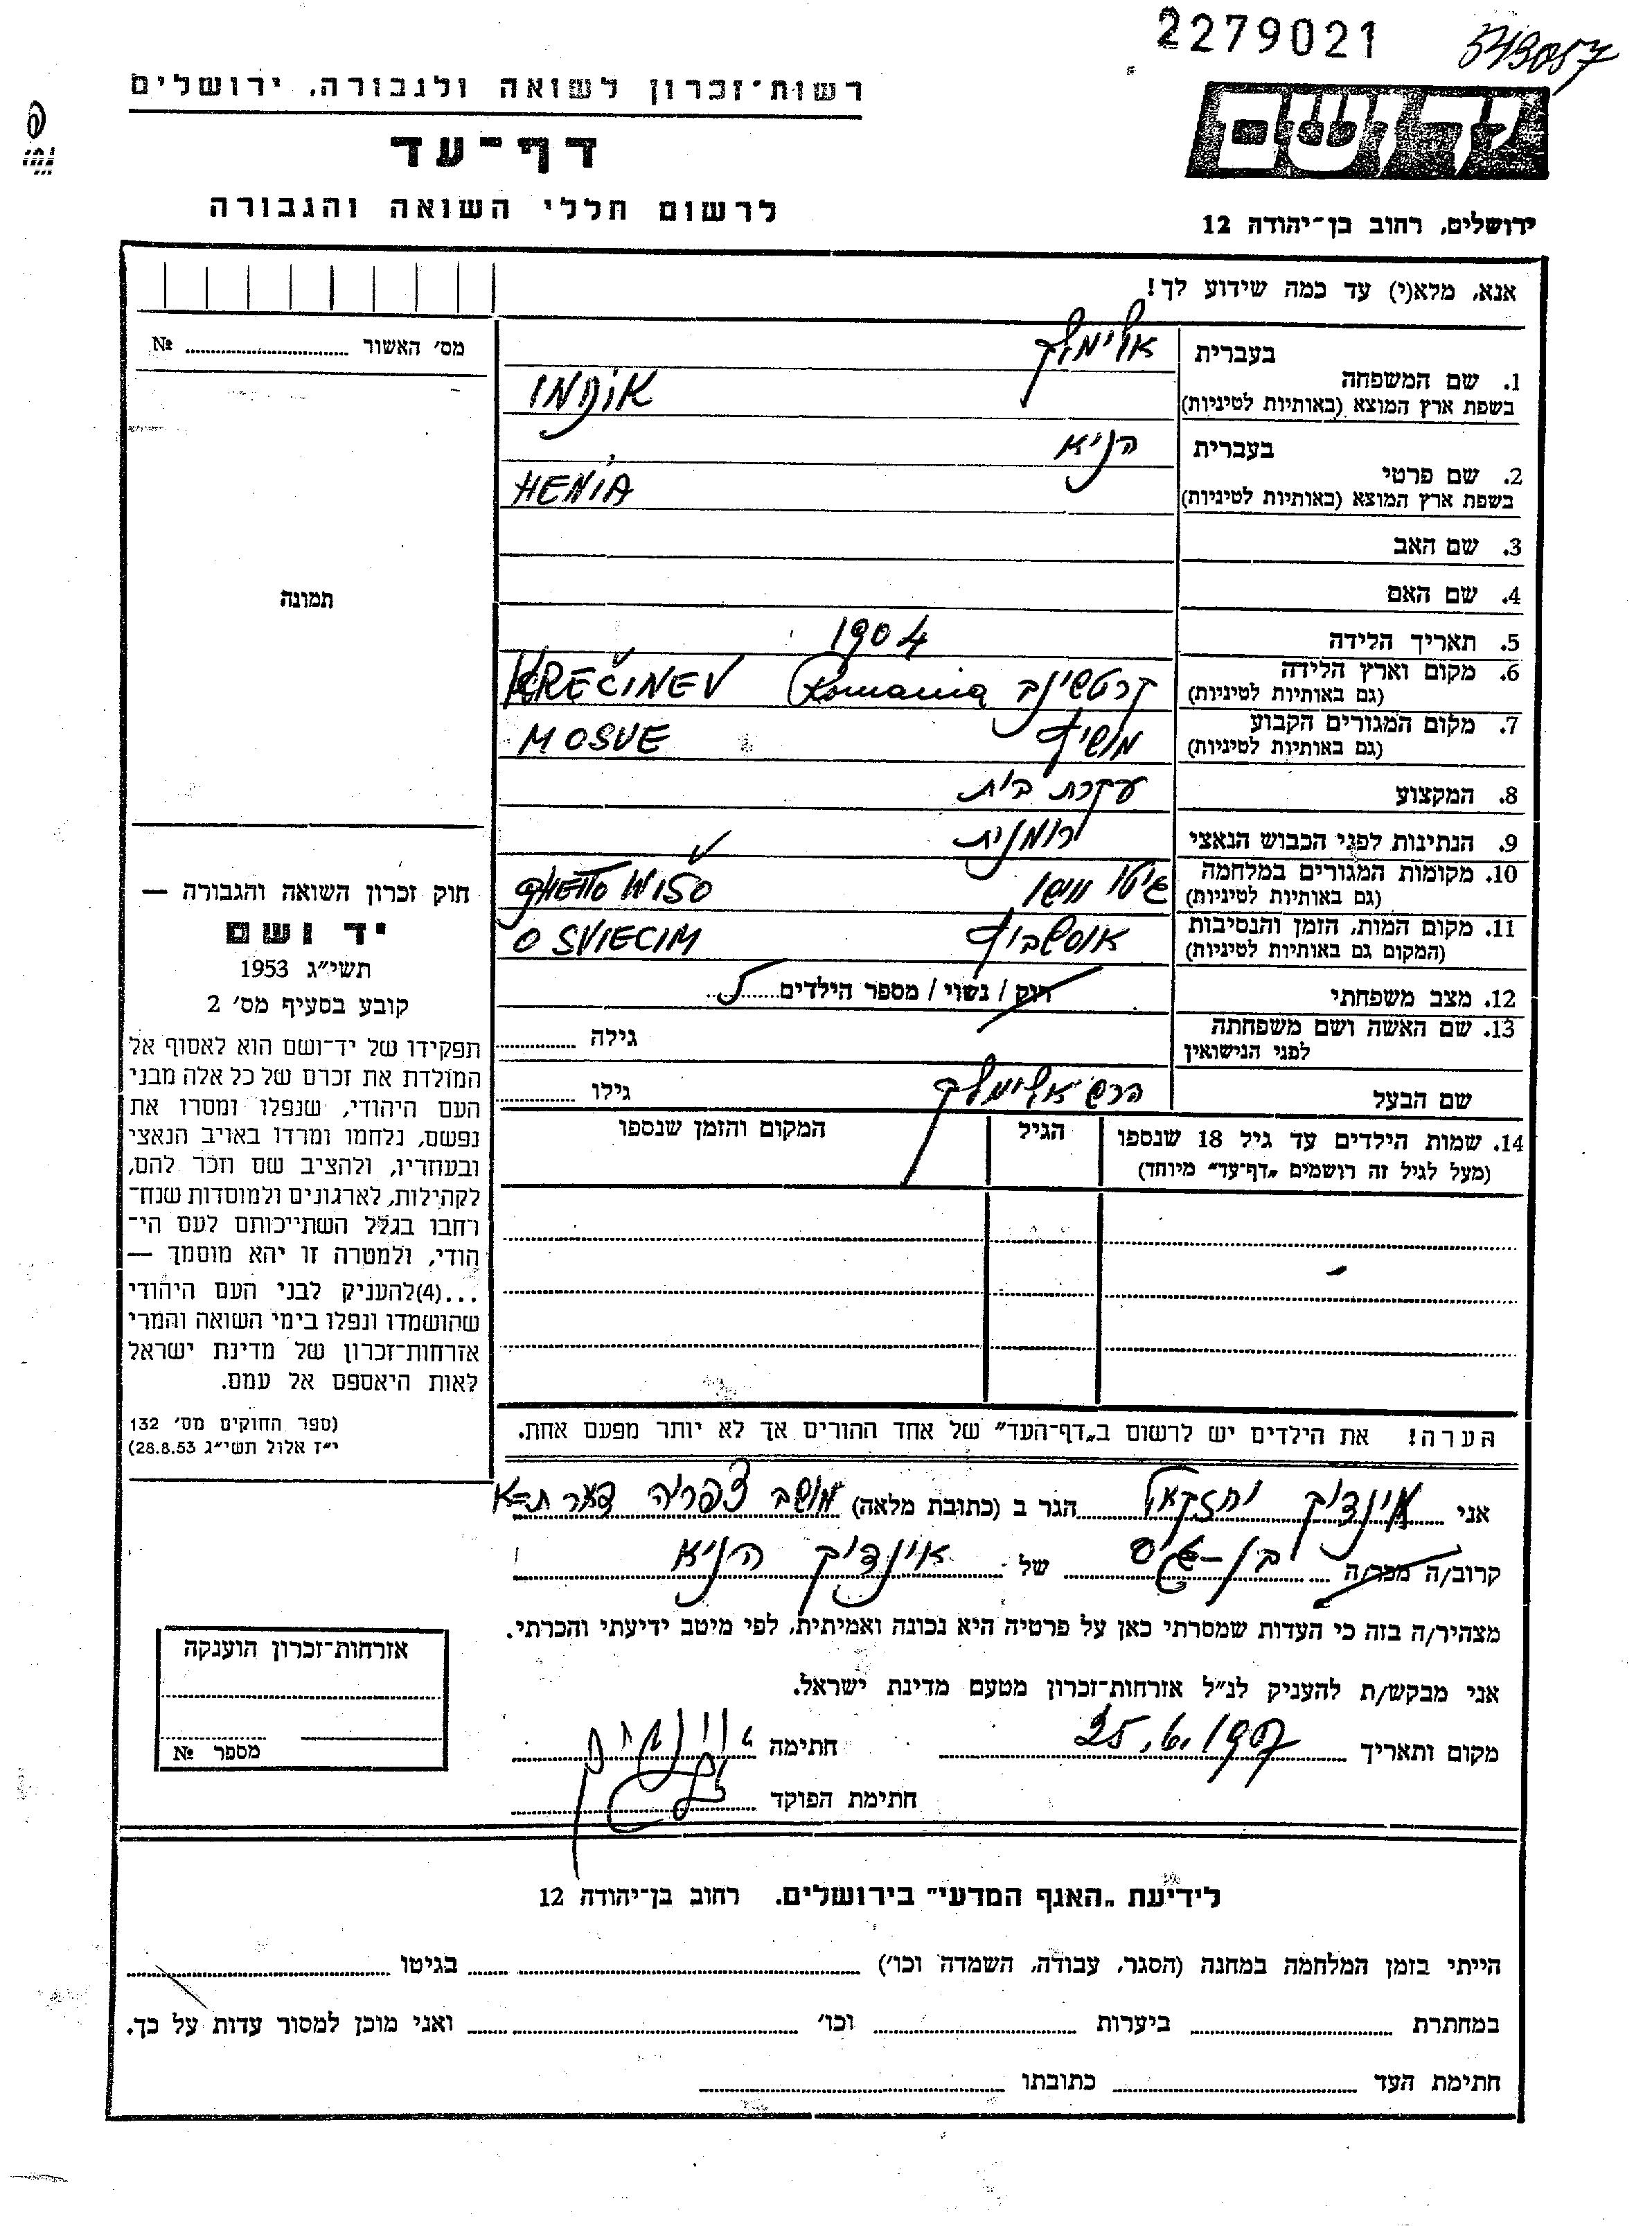 2279021
רשות־זכרון לשואה ולגבורה, ירושלים
דף־עד
לרשום חללי השואה והגבורה
ירושלים, רחוב בן־יהודה 12
אנא, מלא(י) עד כמה שידוע לך!
מס׳ האשור № ........
1. שם המשפחה
בעברית
אלימלך
בשפת ארץ המוצא (באותיות לטיניות)
2. שם פרטי
בעברית
הניא
בשפת ארץ המוצא (באותיות לטיניות)
HENIA
3. שם האב
4. שם האם
5. תאריך הלידה 1904
6. מקום וארץ הלידה קרטשינב Romania KREČINEV
(גם באותיות לטיניות)
7. מקום המגורים הקבוע MOSVE
(גם באותיות לטיניות)
8. המקצוע עקרת בית
9. הנתינות לפני הכבוש הנאצי רומנית
10. מקומות המגורים במלחמה גיטו GHETTO WISO
(גם באותיות לטיניות)
11. מקום המות, הזמן והנסיבות OSVIECIM
(המקום גם באותיות לטיניות)
12. מצב משפחתי רוק / נשוי / מספר הילדים 5
13. שם האשה ושם משפחתה
לפני הנישואין
גילה ........
שם הבעל הרש אלימלך גילו ........
14. שמות הילדים עד גיל 18 שנספו
(מעל לגיל זה רושמים „דף־עד״ מיוחד)
הגיל
המקום והזמן שנספו
תמונה
חוק זכרון השואה והגבורה —
יד ושם
תשי״ג 1953
קובע בסעיף מס׳ 2
תפקידו של יד־ושם הוא לאסוף אל
המולדת את זכרם של כל אלה מבני
העם היהודי, שנפלו ומסרו את
נפשם, נלחמו ומרדו באויב הנאצי
ובעוזריו, ולהציב שם וזכר להם,
לקהילות, לארגונים ולמוסדות שנח־
רחבו בגלל השתייכותם לעם הי־
הודי, ולמטרה זו יהא מוסמך —
...(4)להעניק לבני העם היהודי
שהושמדו ונפלו בימי השואה והמרי
אזרחות־זכרון של מדינת ישראל
לאות היאספם אל עמם.
(ספר החוקים מס׳ 132
י״ז אלול תשי״ג 28.8.53)
הערה! את הילדים יש לרשום ב„דף־העד״ של אחד ההורים אך לא יותר מפעם אחת.
אני אינדיק יחזקאל הגר ב (כתובת מלאה) מושב צפריה
קרוב/ה מכר/ה בן-גיס של אינדיק הניא
מצהיר/ה בזה כי העדות שמסרתי כאן על פרטיה היא נכונה ואמיתית, לפי מיטב ידיעתי והכרתי.
אני מבקש/ת להעניק לנ״ל אזרחות־זכרון מטעם מדינת ישראל.
מקום ותאריך חתימה
חתימת הפוקד
אזרחות־זכרון הוענקה
מספר №
לידיעת „האגף המדעי״ בירושלים. רחוב בן־יהודה 12
הייתי בזמן המלחמה במחנה (הסגר, עבודה, השמדה וכו׳) ........ בגיטו ........
במחתרת ........ ביערות ........ וכו׳ ........ ואני מוכן למסור עדות על כך.
חתימת העד ........ כתובתו ........